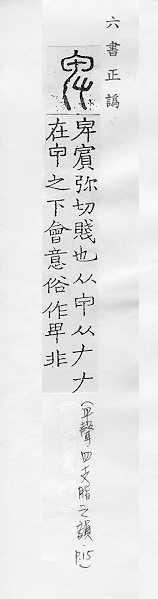 六書正譌
𤰞賔弥切賤也从甲从𠂇𠂇
在甲之下會意俗作卑非
(平聲四支脂之韻 P.15)